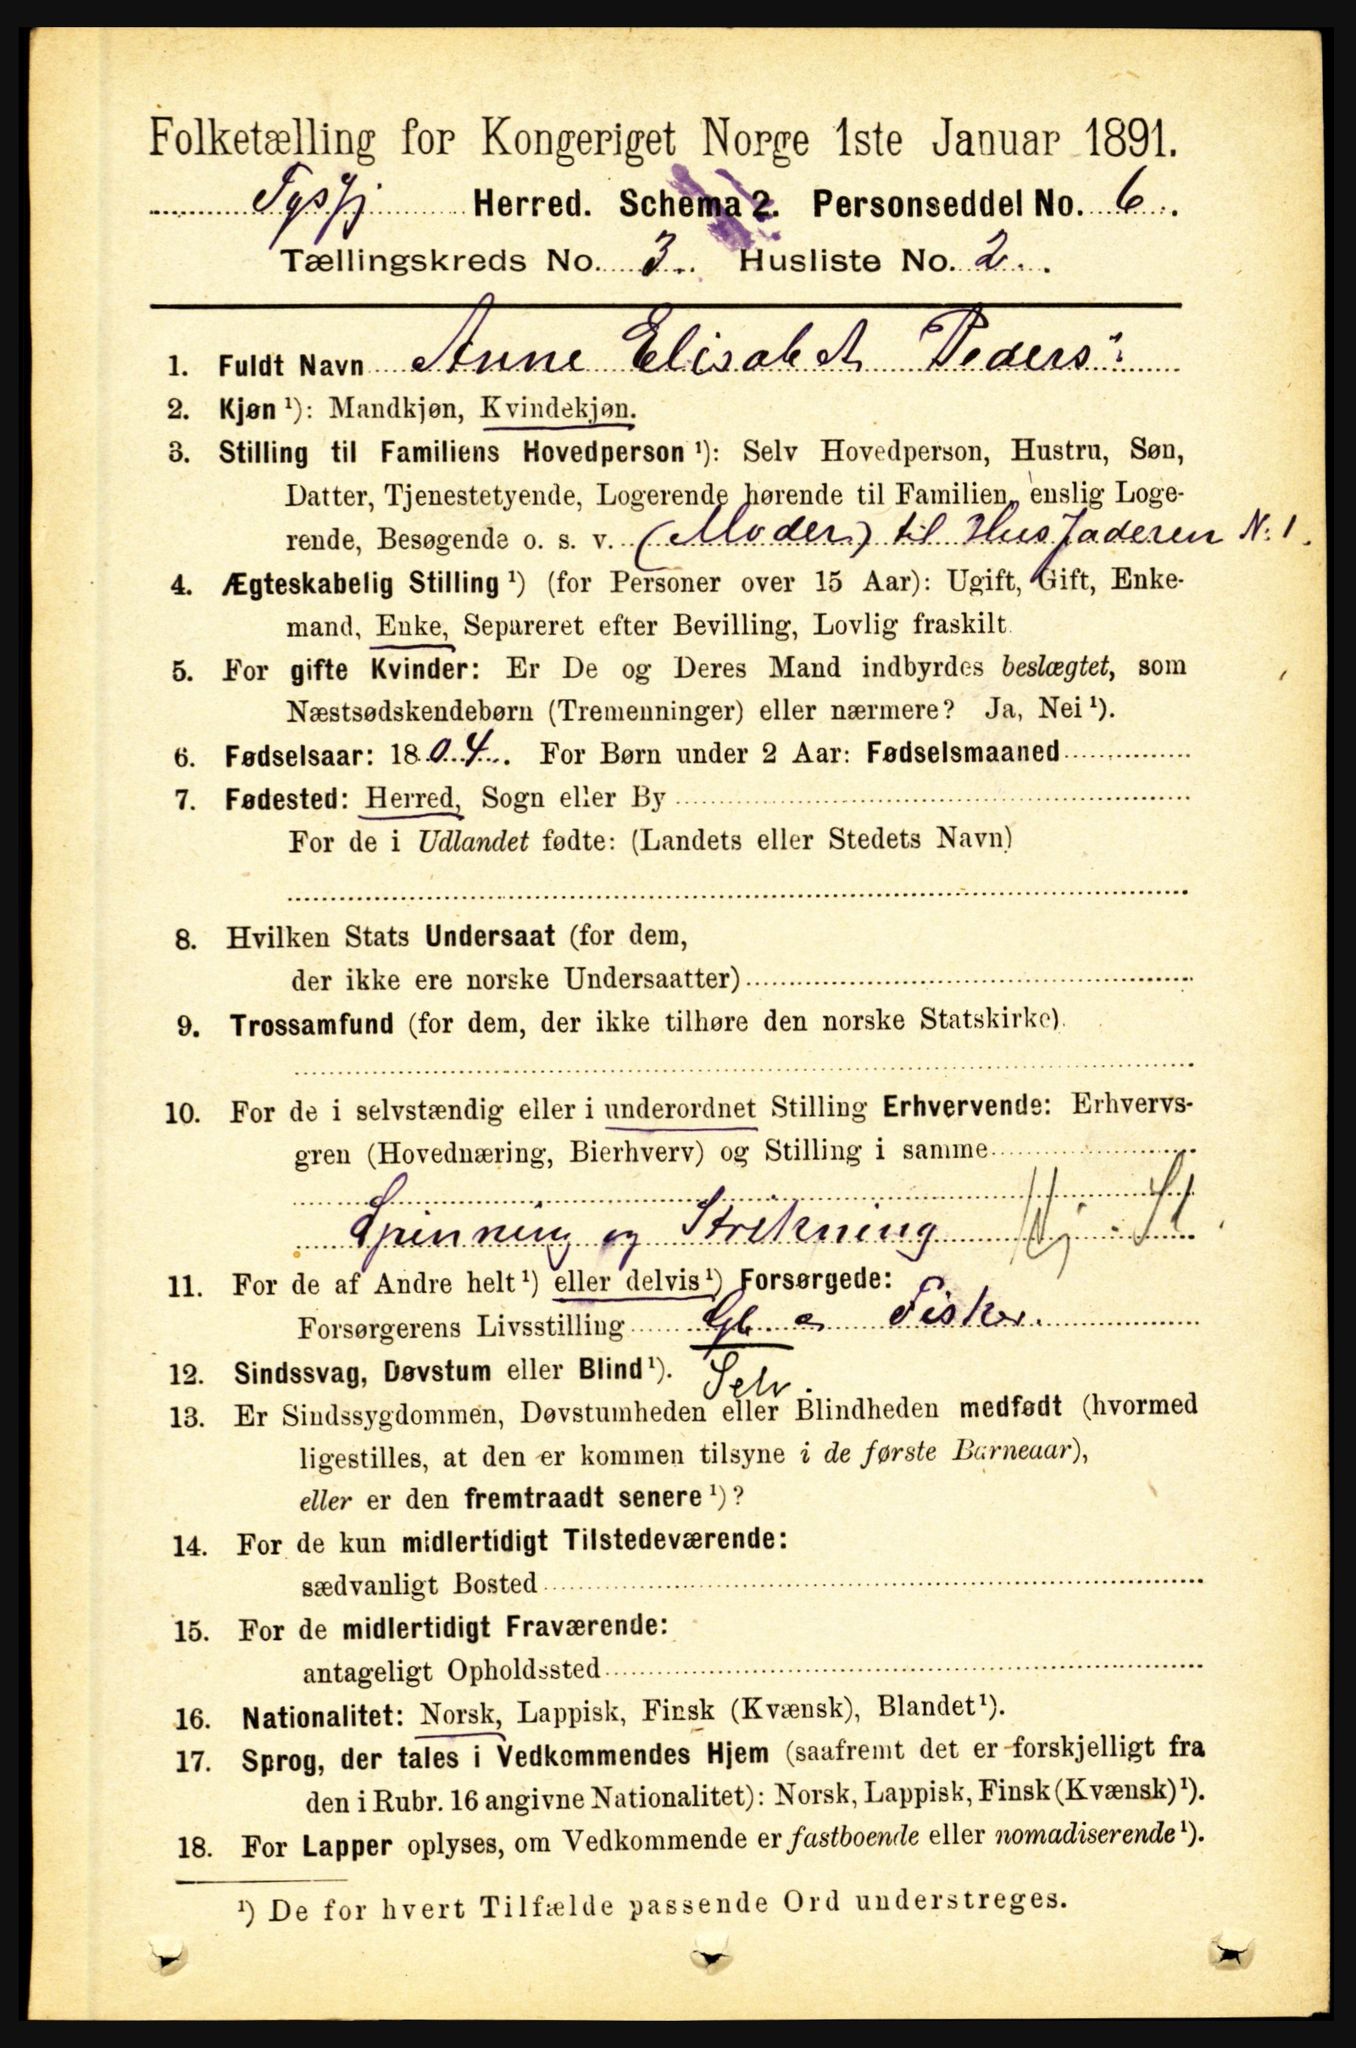 Folketælling for Kongeriget Norge 1ste Januar 1891.
Tysfj Herred. Schema 2. Personseddel No. 6.
Tællingskreds No. 3. Husliste No. 2.
1. Fuldt Navn Anne Elisabet Peders
2. Kjøn ¹): Mandkjøn, Kvindekjøn.
3. Stilling til Familiens Hovedperson ¹): Selv Hovedperson, Hustru, Søn,
Datter, Tjenestetyende, Logerende hørende til Familien, enslig Loge-
rende, Besøgende o. s. v. (Moder) til Husfaderen N: 1.
4. Ægteskabelig Stilling ¹) (for Personer over 15 Aar): Ugift, Gift, Enke-
mand, Enke, Separeret efter Bevilling, Lovlig fraskilt.
5. For gifte Kvinder: Er De og Deres Mand indbyrdes beslægtet, som
Næstsødskendebørn (Tremenninger) eller nærmere? Ja, Nei ¹).
6. Fødselsaar: 1804. For Børn under 2 Aar: Fødselsmaaned
7. Fødested: Herred, Sogn eller By
For de i Udlandet fødte: (Landets eller Stedets Navn)
8. Hvilken Stats Undersaat (for dem,
der ikke ere norske Undersaatter)
9. Trossamfund (for dem, der ikke tilhøre den norske Statskirke).
10. For de i selvstændig eller i underordnet Stilling Erhvervende: Erhvervs-
gren (Hovednæring, Bierhverv) og Stilling i samme
Spinning og Strikning
11. For de af Andre helt ¹) eller delvis ¹) Forsørgede:
Forsørgerens Livsstilling Gb Fisker.
12. Sindssvag, Døvstum eller Blind ¹). Selv.
13. Er Sindssygdommen, Døvstumheden eller Blindheden medfødt (hvormed
ligestilles, at den er kommen tilsyne i de første Barneaar),
eller er den fremtraadt senere ¹)?
14. For de kun midlertidigt Tilstedeværende:
sædvanligt Bosted
15. For de midlertidigt Fraværende:
antageligt Opholdssted
16. Nationalitet: Norsk, Lappisk, Finsk (Kvænsk), Blandet ¹).
17. Sprog, der tales i Vedkommendes Hjem (saafremt det er forskjelligt fra
den i Rubr. 16 angivne Nationalitet): Norsk, Lappisk, Finsk (Kvænsk) ¹).
18. For Lapper oplyses, om Vedkommende er fastboende eller nomadiserende ¹).
¹) De for hvert Tilfælde passende Ord understreges.